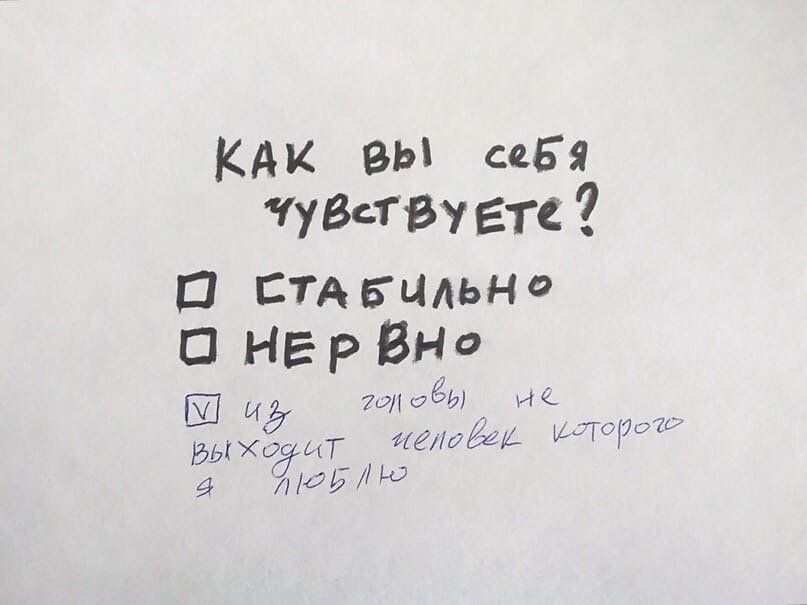 КАК ВЫ СЕБЯ
ЧУВСТВУЕТЕ?
□ СТАБИЛЬНО
□ НЕРВНО
☑ из головы не
выходит человек которого
я люблю